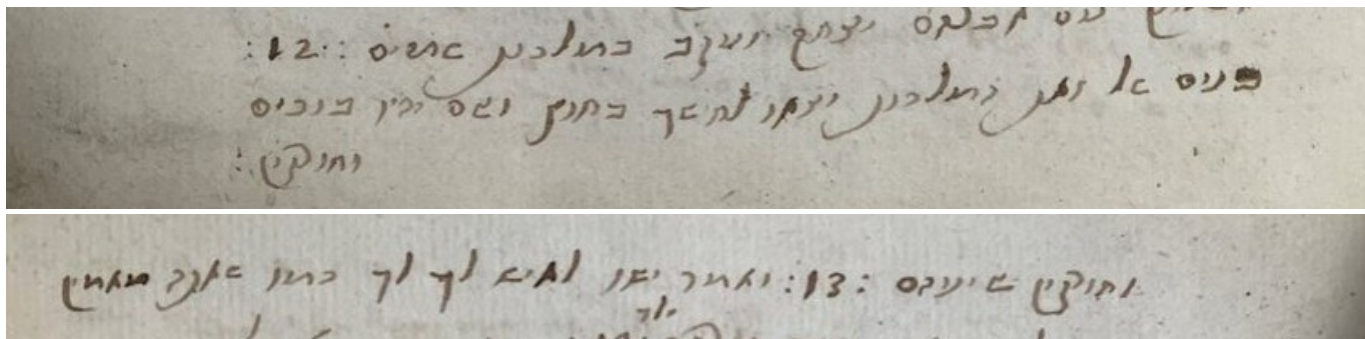 עם אברהם יצחק ויעקב במלכות השמים :12:
בנים אל זאת המלכות יצאו לחשך בחוץ ושם יהיו בוכים
וחורקין:
וחורקין שיניהם :13: ואמר ישו לאיש לך לך כמו שאתה מאמין